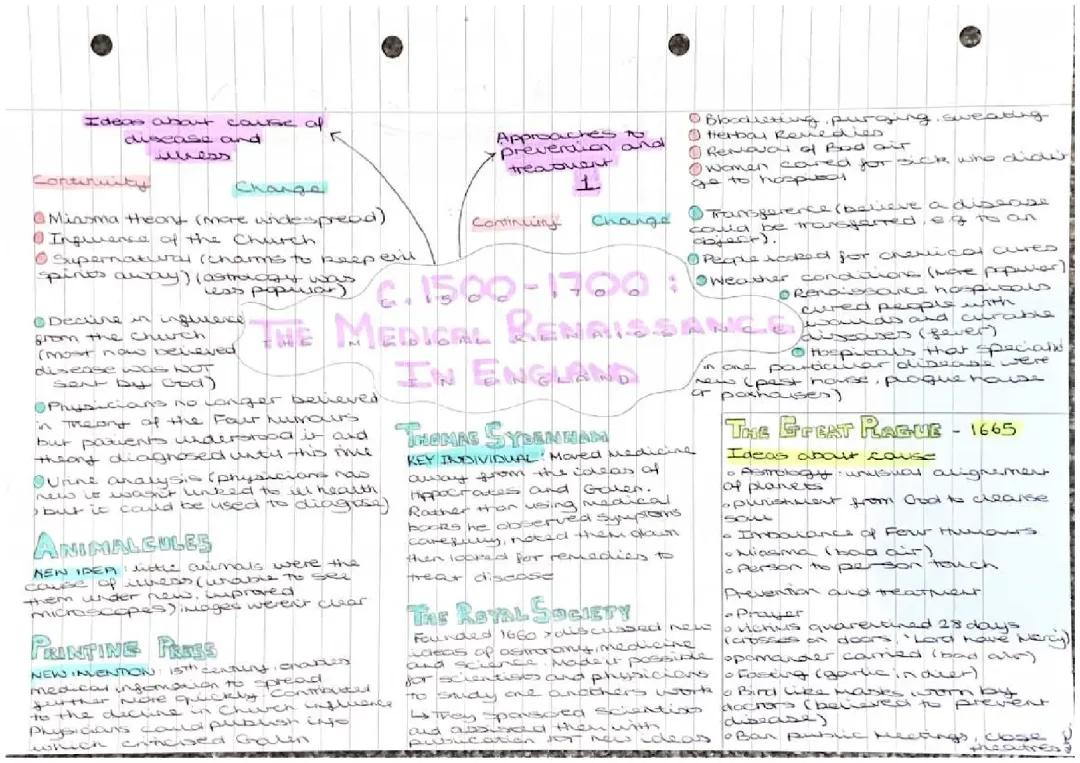 Ideas about cause of
disease and
illness
Continuity
Change
Miasma theory (more widespread)
Influence of the Church
Supernatural (charms to keep evil
spirits away) (astrology was
less popular)
Decline in influence
from the Church
(most now believed
disease was NOT
sent by God)
Physicians no longer believed
in Theory of the Four humours
but patients understood it and
theory diagnosed until this time
Urine analysis (physicians now
new it wasn't linked to ill health
, but it could be used to diagnose)
ANIMALCULES
NEW IDEA: little animals were the
cause of illness (unable to see
them under new, improved
microscopes) images weren't clear
PRINTING PRESS
NEW INVENTION: 15th century, enables
medical information to spread
further more quickly. Contributed
to the decline in Church influence
Physicians could publish info
which criticised Galen
Approaches to
prevention and
treatment
1
Continuity Change
c.1500-1700:
THE MEDICAL RENAISSANCE
IN ENGLAND
THOMAS SYDENHAM
KEY INDIVIDUAL: Moved medicine
away from the ideas of
Hippocrates and Galen.
Rather than using medical
books he observed symptoms
carefully, noted them down
then looked for remedies to
treat disease
THE ROYAL SOCIETY
Founded 1660 > discussed new
ideas of astronomy, medicine
and science. Made it possible
for scientists and physicians
to study one anothers work
↳ They sponsored scientists
and assisted them with
publication for new ideas
Bloodletting, purging, sweating
Herbal Remedies
Removal of Bad air
Women cared for sick who didn't
go to hospital
Transference (believe a disease
could be transferred, e.g to an
object).
People looked for chemical cures
Weather conditions (more popular)
Renaissance hospitals
cured people with
wounds and curable
diseases (fever)
Hospitals that specialise
in one particular disease were
new (pest house, plague house
or poxhouses)
THE GREAT PLAGUE - 1665
Ideas about cause
Astrology: unusual alignement
of planets
punishment from God to cleanse
soul
Imbalance of Four Humours
Miasma (bad air)
Person to person touch
Prevention and treatment
Prayer
Victims quarentined 28 days
(crosses on doors, "Lord have Mercy)
pomander carried (bad air)
Fasting (garlic in diet)
Bird like masks worn by
doctors (believed to prevent
disease)
Ban public meetings, close
theatres